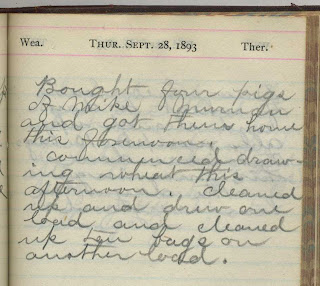 Wea. THUR. SEPT. 28, 1893 Ther.
Bought four pigs
of Mike
and got them home
this forenoon.
commenced draw-
ing wheat this
afternoon. cleaned
up and drew one
load, and cleaned
up ten bags on
another load.